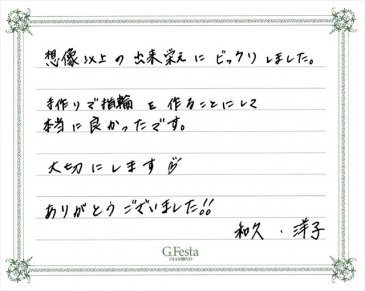 想像以上の出来栄えにビックリしました。
手作りで指輪を作ることにして
本当に良かったです。
大切にします
ありがとうございました!!
和久・洋子
G.Festa
DIAMOND